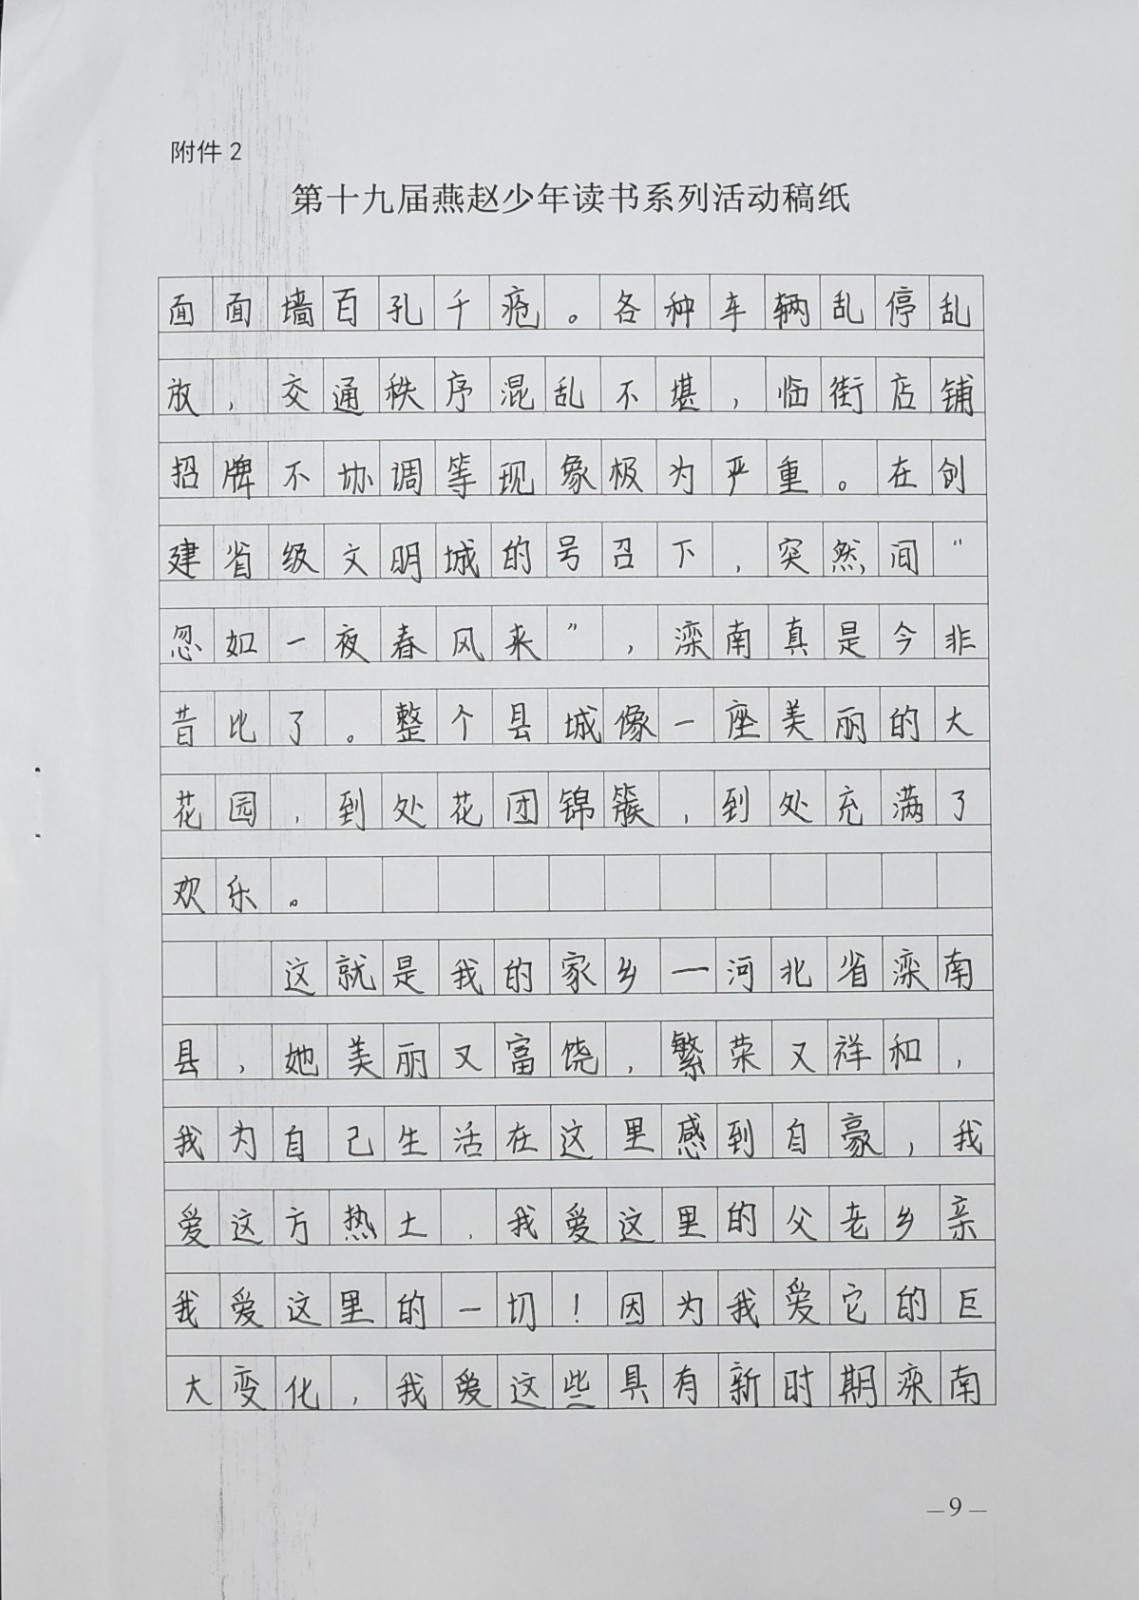 附件2
第十九届燕赵少年读书系列活动稿纸
面面墙百孔千疮。各种车辆乱停乱
放，交通秩序混乱不堪，临街店铺
招牌不协调等现象极为严重。在创
建省级文明城的号召下，突然间“
忽如一夜春风来”，滦南真是今非
昔比了。整个县城像一座美丽的大
花园，到处花团锦簇，到处充满了
欢乐。
这就是我的家乡一河北省滦南
县，她美丽又富饶，繁荣又祥和，
我为自己生活在这里感到自豪，我
爱这方热土，我爱这里的父老乡亲
我爱这里的一切！因为我爱它的巨
大变化，我爱这些具有新时期滦南
—9—